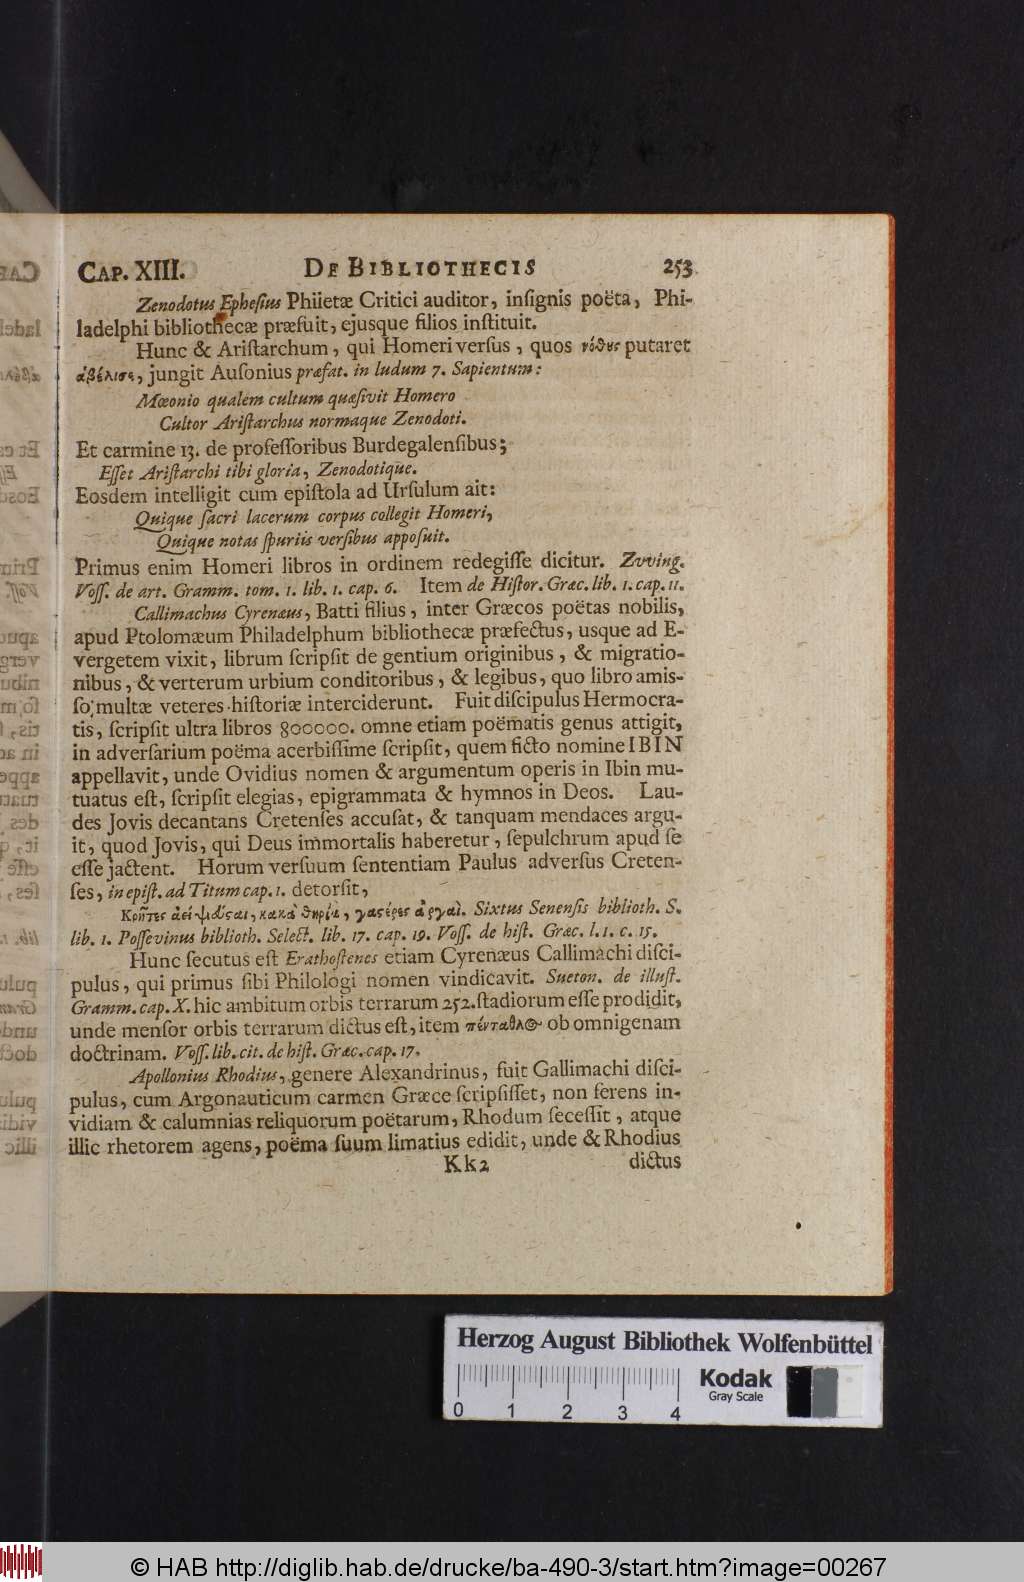 CAP. XIII. DE BIBLIOTHECIS 253
Zenodotus Epheſius Phiietæ Critici auditor, inſignis poëta, Phi-
ladelphi bibliothecæ præfuit, ejusque filios inſtituit.
Hunc & Ariſtarchum, qui Homeri verſus, quos νόθες putaret
ὀβέλισε, jungit Auſonius præfat. in ludum 7. Sapientum:
Mœonio qualem cultum quæſivit Homero
Cultor Ariſtarchus normaque Zenodoti.
Et carmine 13. de profeſſoribus Burdegalenſibus;
Eſſet Ariſtarchi tibi gloria, Zenodotique.
Eosdem intelligit cum epiſtola ad Urſulum ait:
Quique ſacri lacerum corpus collegit Homeri,
Quique notas ſpuriis verſibus appoſuit.
Primus enim Homeri libros in ordinem redegiſſe dicitur. Zvving.
Voſſ. de art. Gramm. tom. 1. lib. 1. cap. 6. Item de Hiſtor. Græc. lib. 1. cap. 11.
Callimachus Cyrenæus, Batti filius, inter Græcos poëtas nobilis,
apud Ptolomæum Philadelphum bibliothecæ præfectus, usque ad E-
vergetem vixit, librum ſcripſit de gentium originibus, & migratio-
nibus, & verterum urbium conditoribus, & legibus, quo libro amis-
ſo, multæ veteres hiſtoriæ interciderunt. Fuit diſcipulus Hermocra-
tis, ſcripſit ultra libros 800000. omne etiam poëmatis genus attigit,
in adverſarium poëma acerbiſſime ſcripſit, quem ficto nomine IBIN
appellavit, unde Ovidius nomen & argumentum operis in Ibin mu-
tuatus eſt, ſcripſit elegias, epigrammata & hymnos in Deos. Lau-
des Jovis decantans Cretenſes accuſat, & tanquam mendaces argu-
it, quod Jovis, qui Deus immortalis haberetur, ſepulchrum apud ſe
eſſe jactent. Horum verſuum ſententiam Paulus adverſus Creten-
ſes, in epiſt. ad Titum cap. 1. detorſit,
Κρῆτες ἀεὶ ψεῦςαι, κακὰ θηρία, γαςέρες ἀργαὶ. Sixtus Senenſis biblioth. S.
lib. 1. Poſſevinus biblioth. Select. lib. 17. cap. 19. Voſſ. de hiſt. Græc. l. 1. c. 15.
Hunc ſecutus eſt Erathoſtenes etiam Cyrenæus Callimachi diſci-
pulus, qui primus ſibi Philologi nomen vindicavit. Sueton. de illuſt.
Gramm. cap. X. hic ambitum orbis terrarum 252. ſtadiorum eſſe prodidit,
unde menſor orbis terrarum dictus eſt, item πένταθλος ob omnigenam
doctrinam. Voſſ. lib. cit. de hiſt. Græc. cap. 17.
Apollonius Rhodius, genere Alexandrinus, fuit Gallimachi diſci-
pulus, cum Argonauticum carmen Græce ſcripſiſſet, non ferens in-
vidiam & calumnias reliquorum poëtarum, Rhodum ſeceſſit, atque
illic rhetorem agens, poëma ſuum limatius edidit, unde & Rhodius
Kk2 dictus
Herzog August Bibliothek Wolfenbüttel
Kodak
Gray Scale
0 1 2 3 4
© HAB http://diglib.hab.de/drucke/ba-490-3/start.htm?image=00267